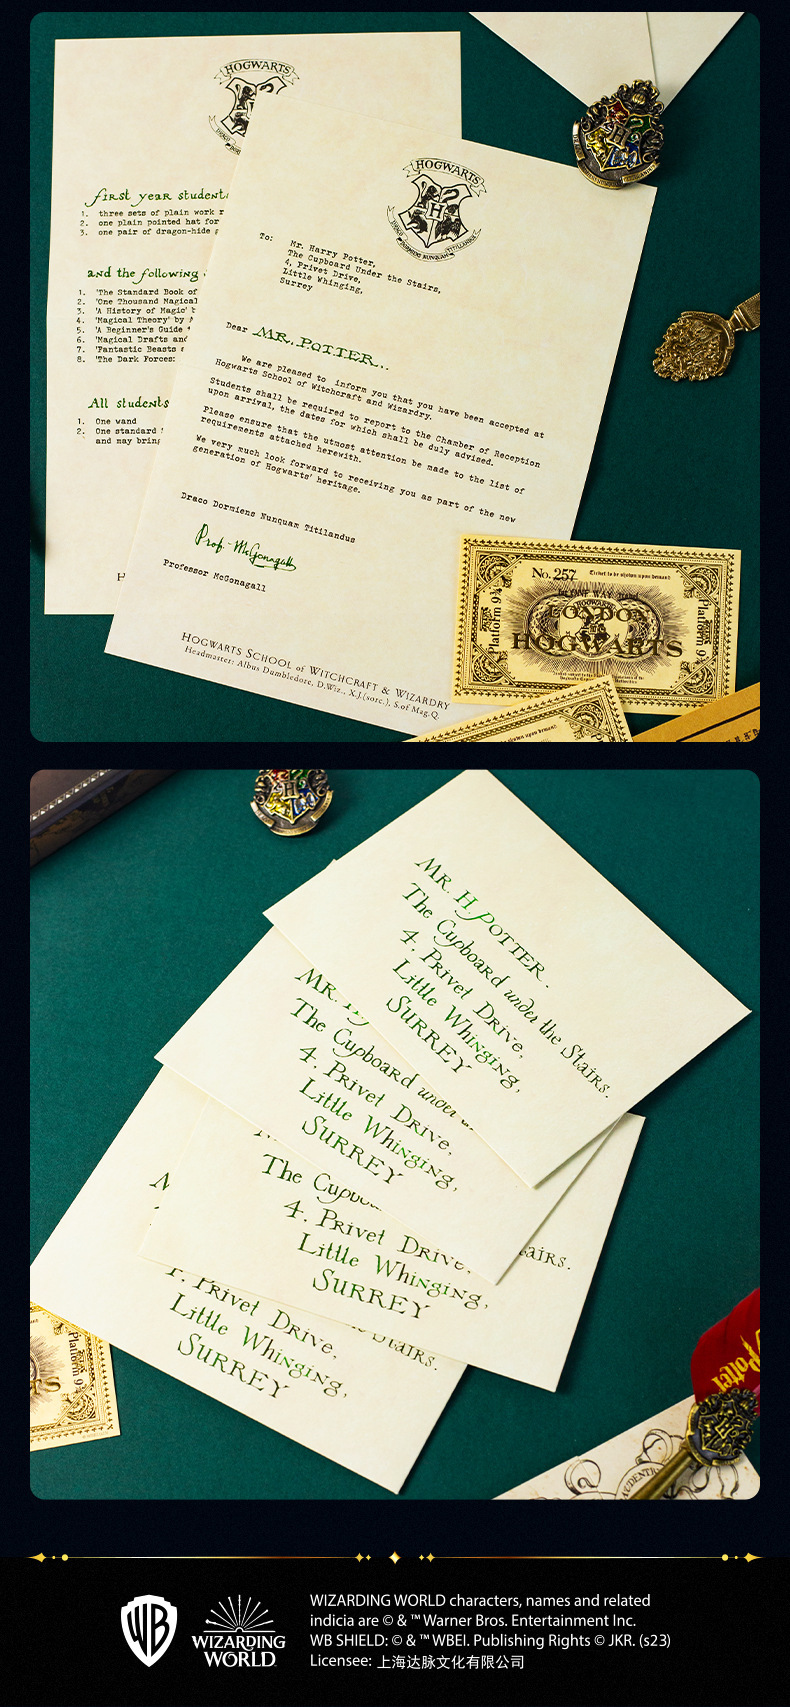 HOGWARTS
first year students
1. three sets of plain work
2. one plain pointed hat for
3. one pair of dragon-hide
and the following
1. 'The Standard Book of
2. 'One Thousand Magical
3. 'A History of Magic'
4. 'Magical Theory' by
5. 'A Beginner's Guide
6. 'Magical Drafts and
7. 'Fantastic Beasts
8. 'The Dark Forces:
All students
1. One wand
2. One standard
and may bring
H
HOGWARTS
H
DRACO DORMIENS NUNQUAM TITILLANDUS
To: Mr. Harry Potter,
The Cupboard Under the Stairs,
4, Privet Drive,
Little Whinging,
Surrey
Dear MR. POTTER..
We are pleased to inform you that you have been accepted at
Hogwarts School of Witchcraft and Wizardry.
Students shall be required to report to the Chamber of Reception
upon arrival, the dates for which shall be duly advised.
Please ensure that the utmost attention be made to the list of
requirements attached herewith.
We very much look forward to receiving you as part of the new
generation of Hogwarts' heritage.
Draco Dormiens Nunquam Titilandus
Prof. McGonagall
Professor McGonagall
HOGWARTS SCHOOL of WITCHCRAFT & WIZARDRY
Headmaster: Albus Dumbledore, D.Wiz., X.J.(sorc.), S.of Mag.Q.
No. 257
Ticket to be shown upon demand
Platform 9¾
LONDON
HOGWARTS
Platform 9¾
MR. H. POTTER.
The Cupboard under the Stairs.
4. Privet Drive,
Little Whinging,
SURREY
MR. H
The Cupboard under
4. Privet Drive,
Little Whinging,
SURREY
The Cup
4. Privet Drive,
Little Whinging,
SURREY
tairs.
Privet Drive,
Little Whinging,
SURREY
Stairs.
Platform 9
Potter
WB
WIZARDING
WORLD
WIZARDING WORLD characters, names and related
indicia are © & ™ Warner Bros. Entertainment Inc.
WB SHIELD: © & ™ WBEI. Publishing Rights © JKR. (s23)
Licensee: 上海达脉文化有限公司